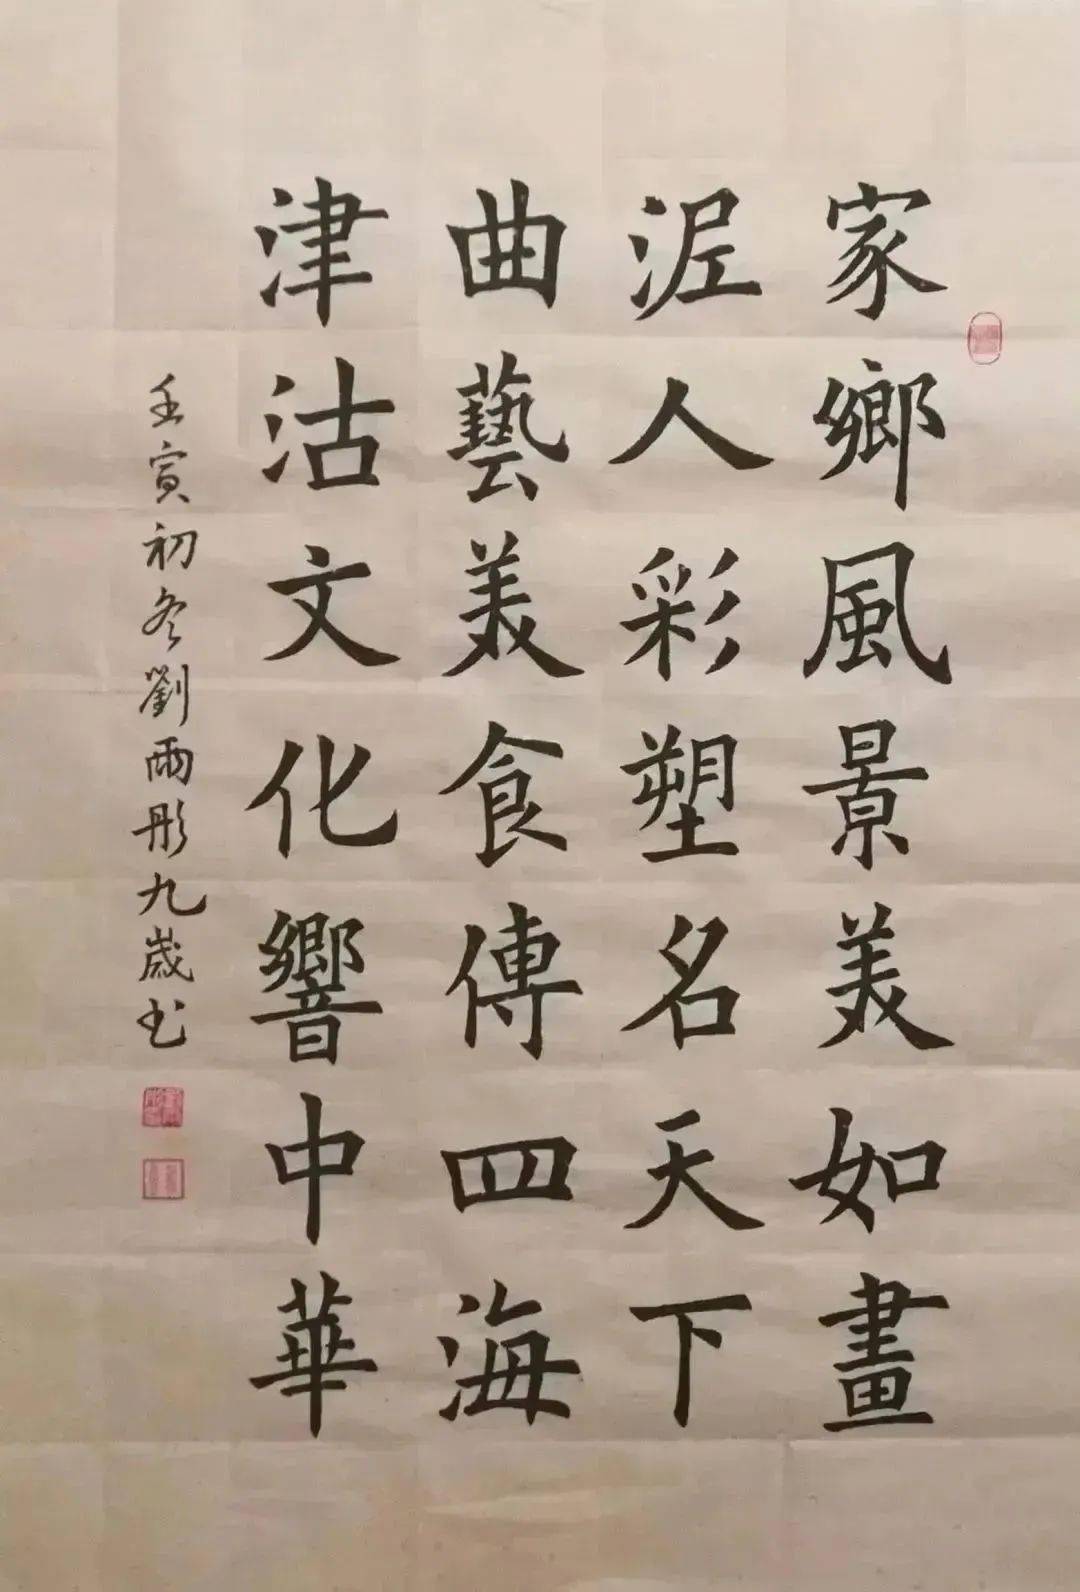 家鄉風景美如畫
泥人彩塑名天下
曲藝美食傳四海
津沽文化響中華
壬寅初冬劉雨彤九歲书